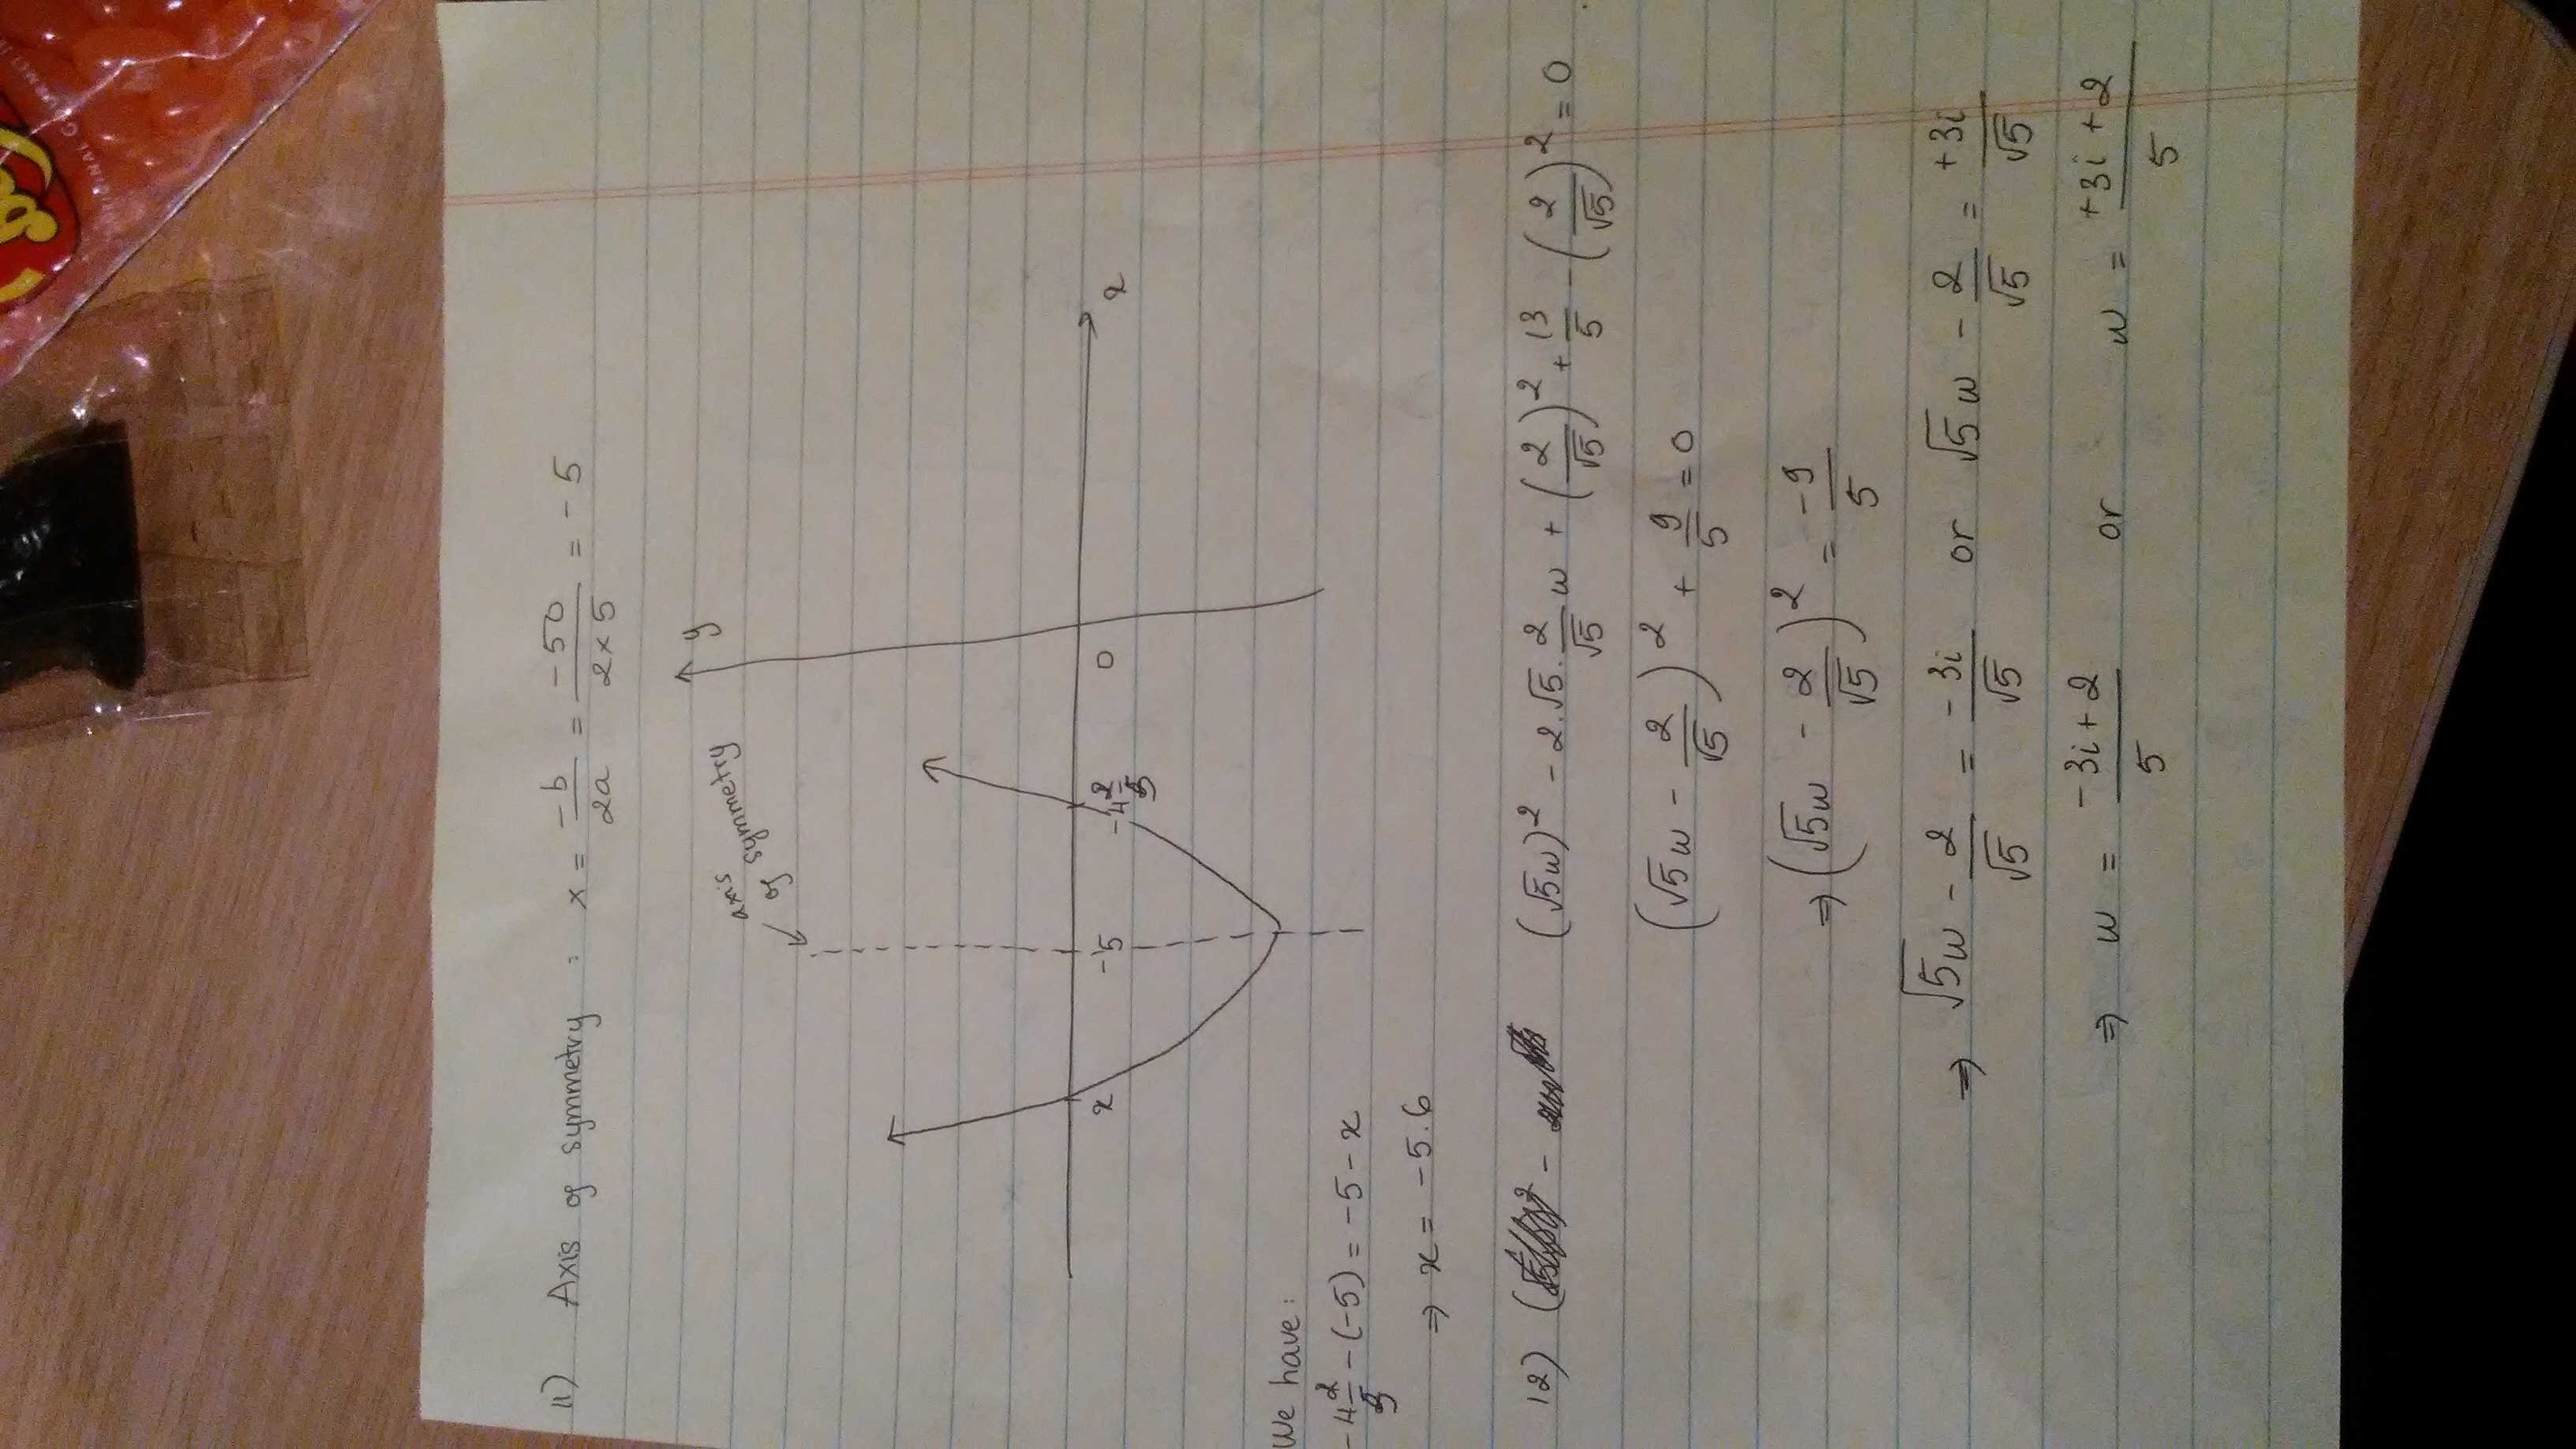 11) Axis of symmetry : x = -b/2a = -50/2×5 = -5
y
axis of symmetry
x
x -5 -4 2/5 0
We have:
-4 2/5 - (-5) = -5 - x
⇒ x = -5.6
12) (√5w)² - 2.√5.2/√5 w + (2/√5)² + 13/5 - (2/√5)² = 0
(√5w - 2/√5)² + 9/5 = 0
⇒ (√5w - 2/√5)² = -9/5
⇒ √5w - 2/√5 = -3i/√5 or √5w - 2/√5 = +3i/√5
⇒ w = -3i+2/5 or w = +3i+2/5